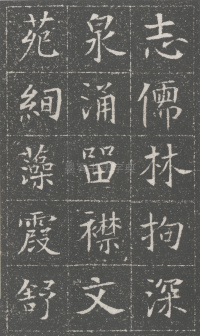 志儒林拘深
泉涌㽞襟文
苑絢藻霞舒